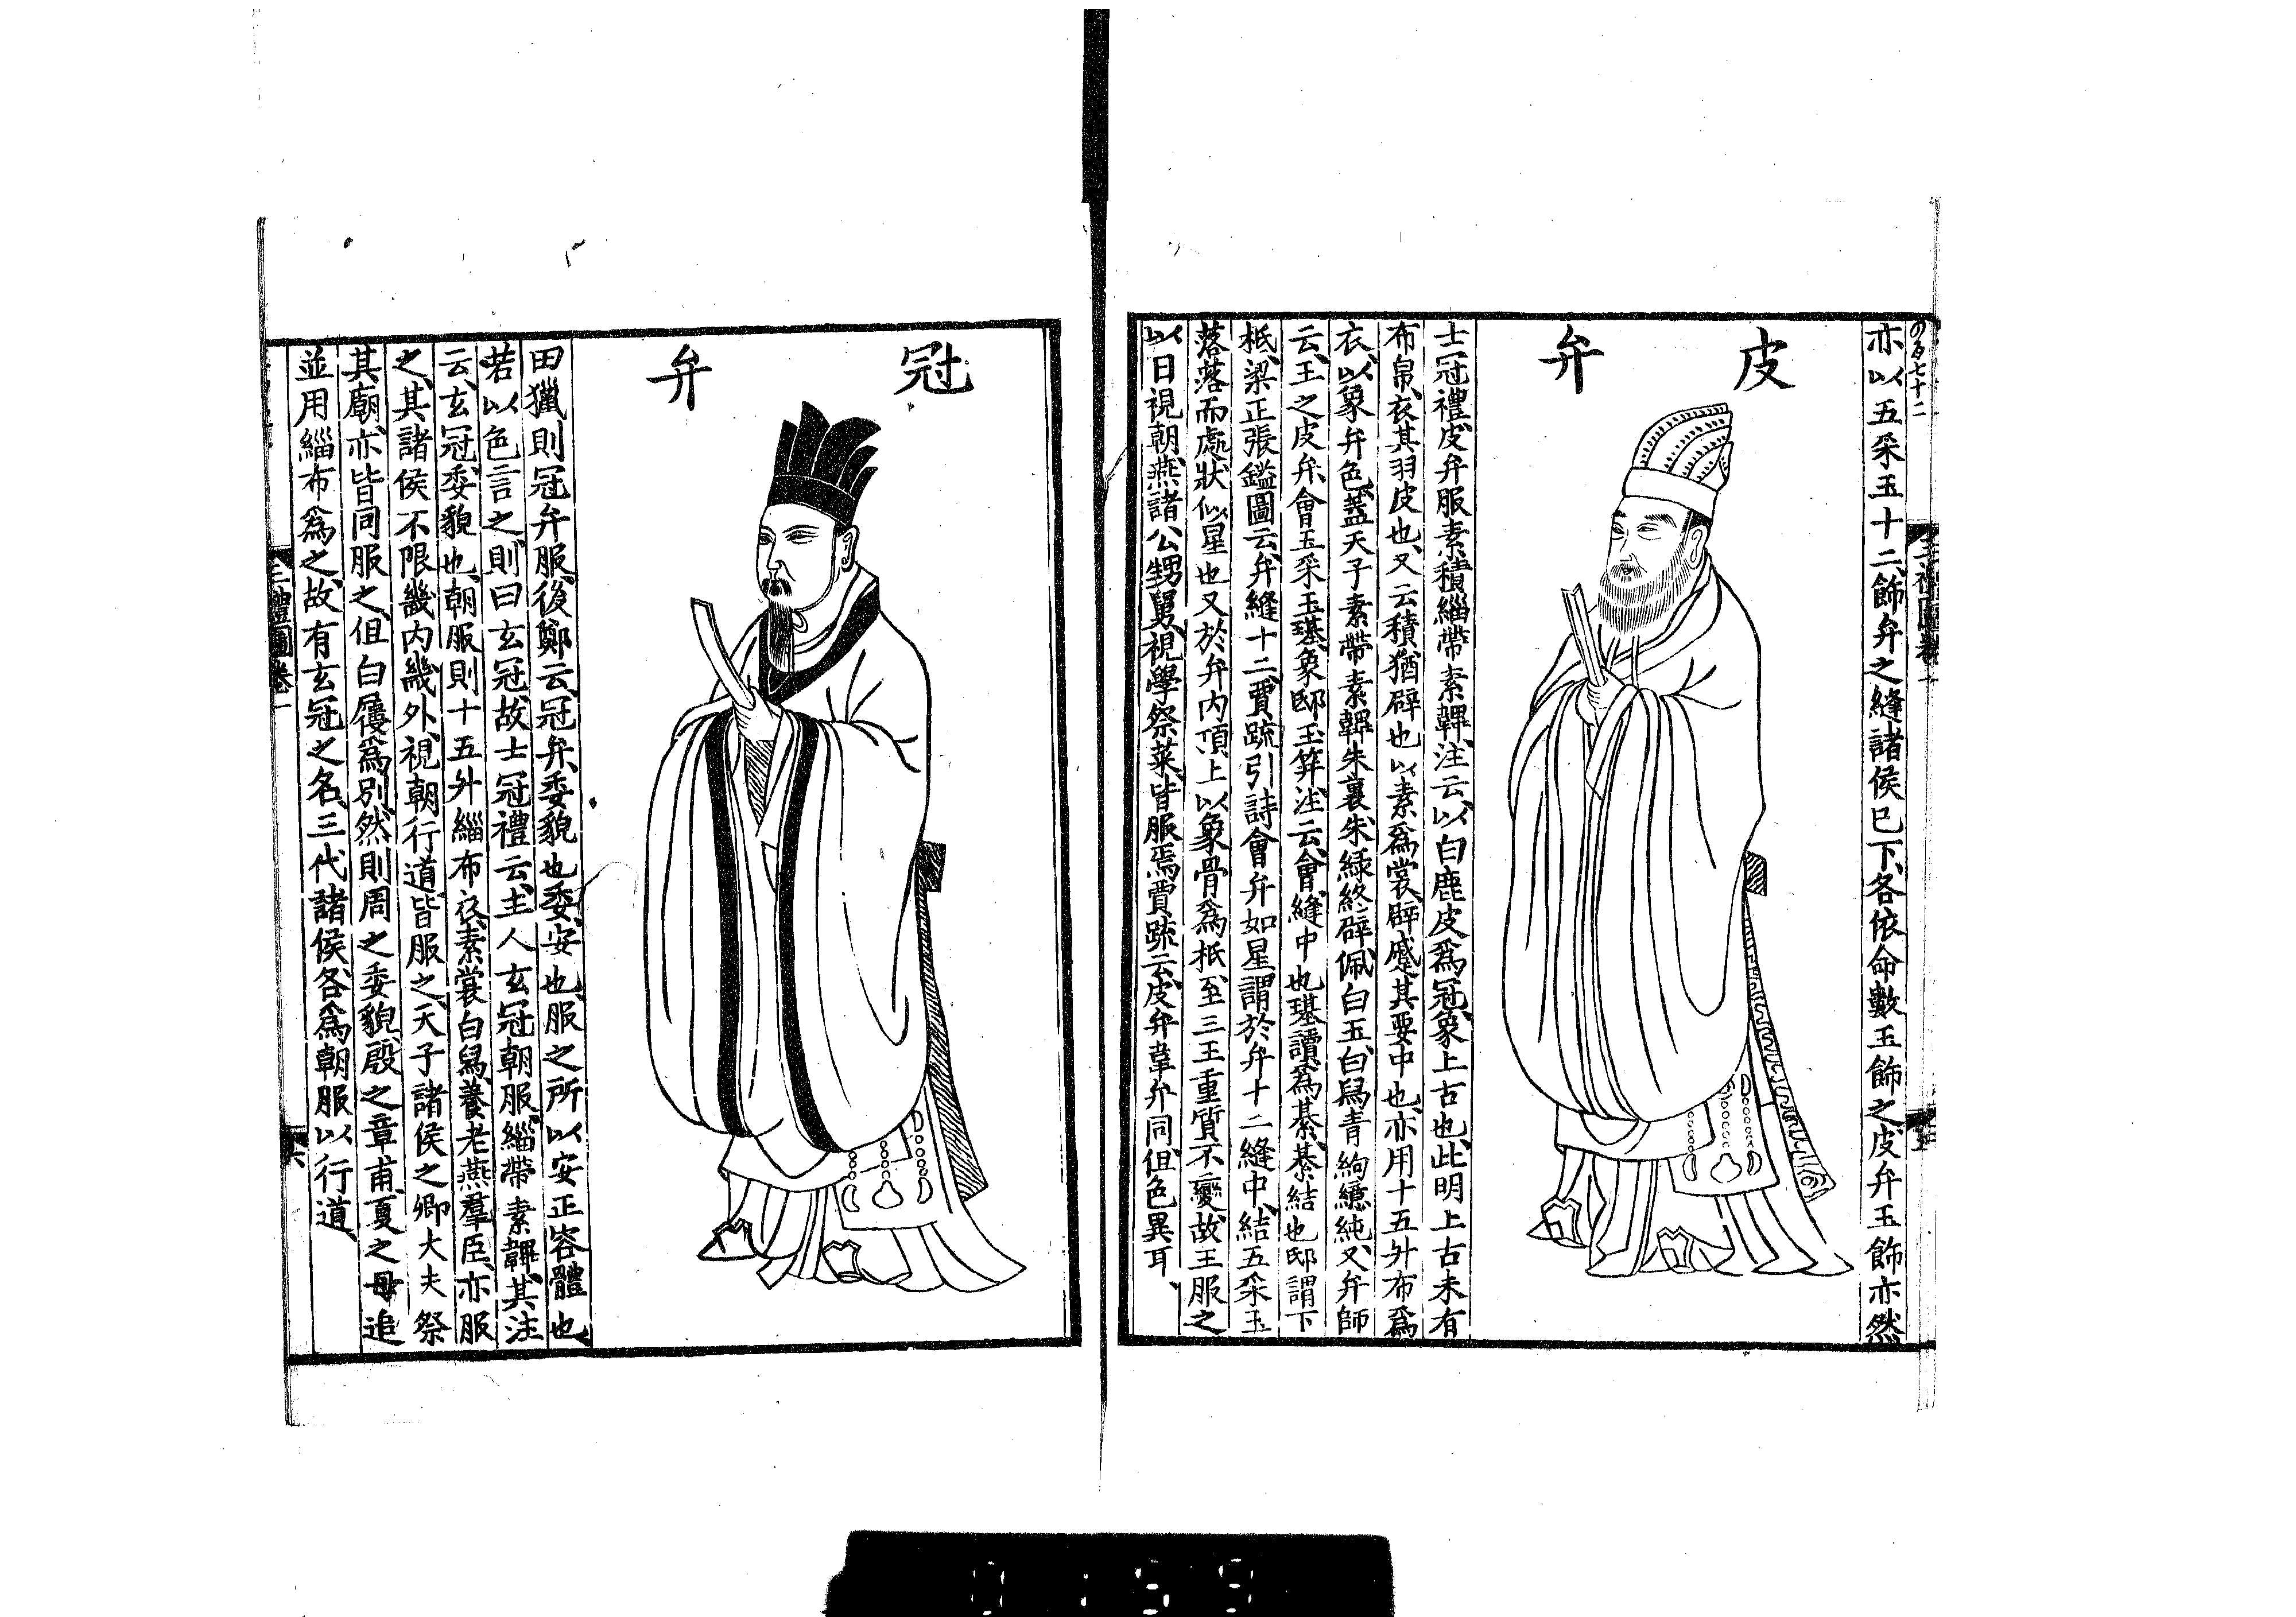 亦以五采玉十二飾弁之縫諸侯已下各依命數玉飾之皮弁玉飾亦然
皮弁
士冠禮皮弁服素積緇帶素韠注云以白鹿皮爲冠象上古也此明上古未有
布帛衣其羽皮也又云積猶辟也以素爲裳辟蹙其要中也亦用十五升布爲
衣以象弁色蓋天子素帶素韠朱裏朱緑終辟佩白玉白舄青絇繶純又弁師
云王之皮弁會五采玉璂象邸玉笄注云會縫中也璂讀爲綦綦結也邸謂下
柢梁正張鎰圖云弁縫十二賈疏引詩會弁如星謂於弁十二縫中結五采玉
落落而處狀似星也又於弁内頂上以象骨爲柢至三王重質不變故王服之
以日視朝燕諸公甥舅視學祭菜皆服焉賈疏云皮弁韋弁同但色異耳
冠弁
田獵則冠弁服後鄭云冠弁委貌也委安也服之所以安正容體也
若以色言之則曰玄冠故士冠禮云主人玄冠朝服緇帶素韠其注
云玄冠委貌也朝服則十五升緇布衣素裳白舄養老燕羣臣亦服
之其諸侯不限畿内畿外視朝行道皆服之天子諸侯之卿大夫祭
其廟亦皆同服之但白屨爲別然則周之委貌殷之章甫夏之毋追
並用緇布爲之故有玄冠之名三代諸侯各爲朝服以行道
三禮圖卷一
六
0159